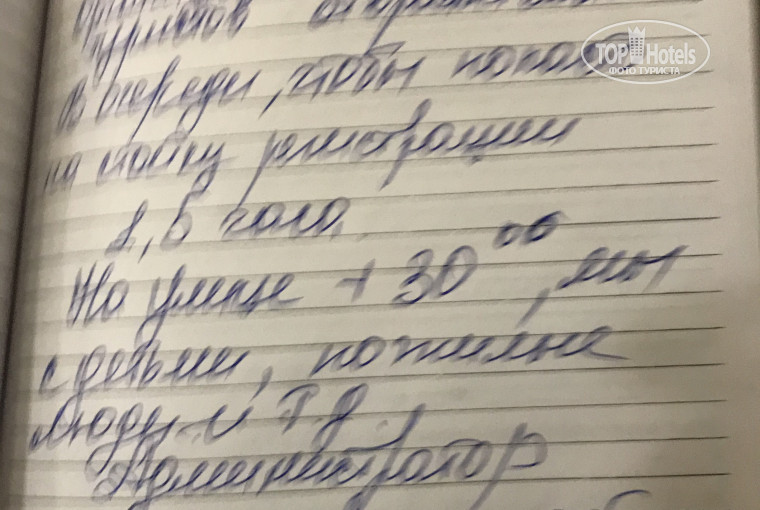 туристов
в очереди, чтобы попасть
на стойку регистрации
1,5 часа.
На улице +30°°, мы
с детьми, пожилые
люди и т.д.
Администратор
TOP Hotels
ФОТО ТУРИСТА